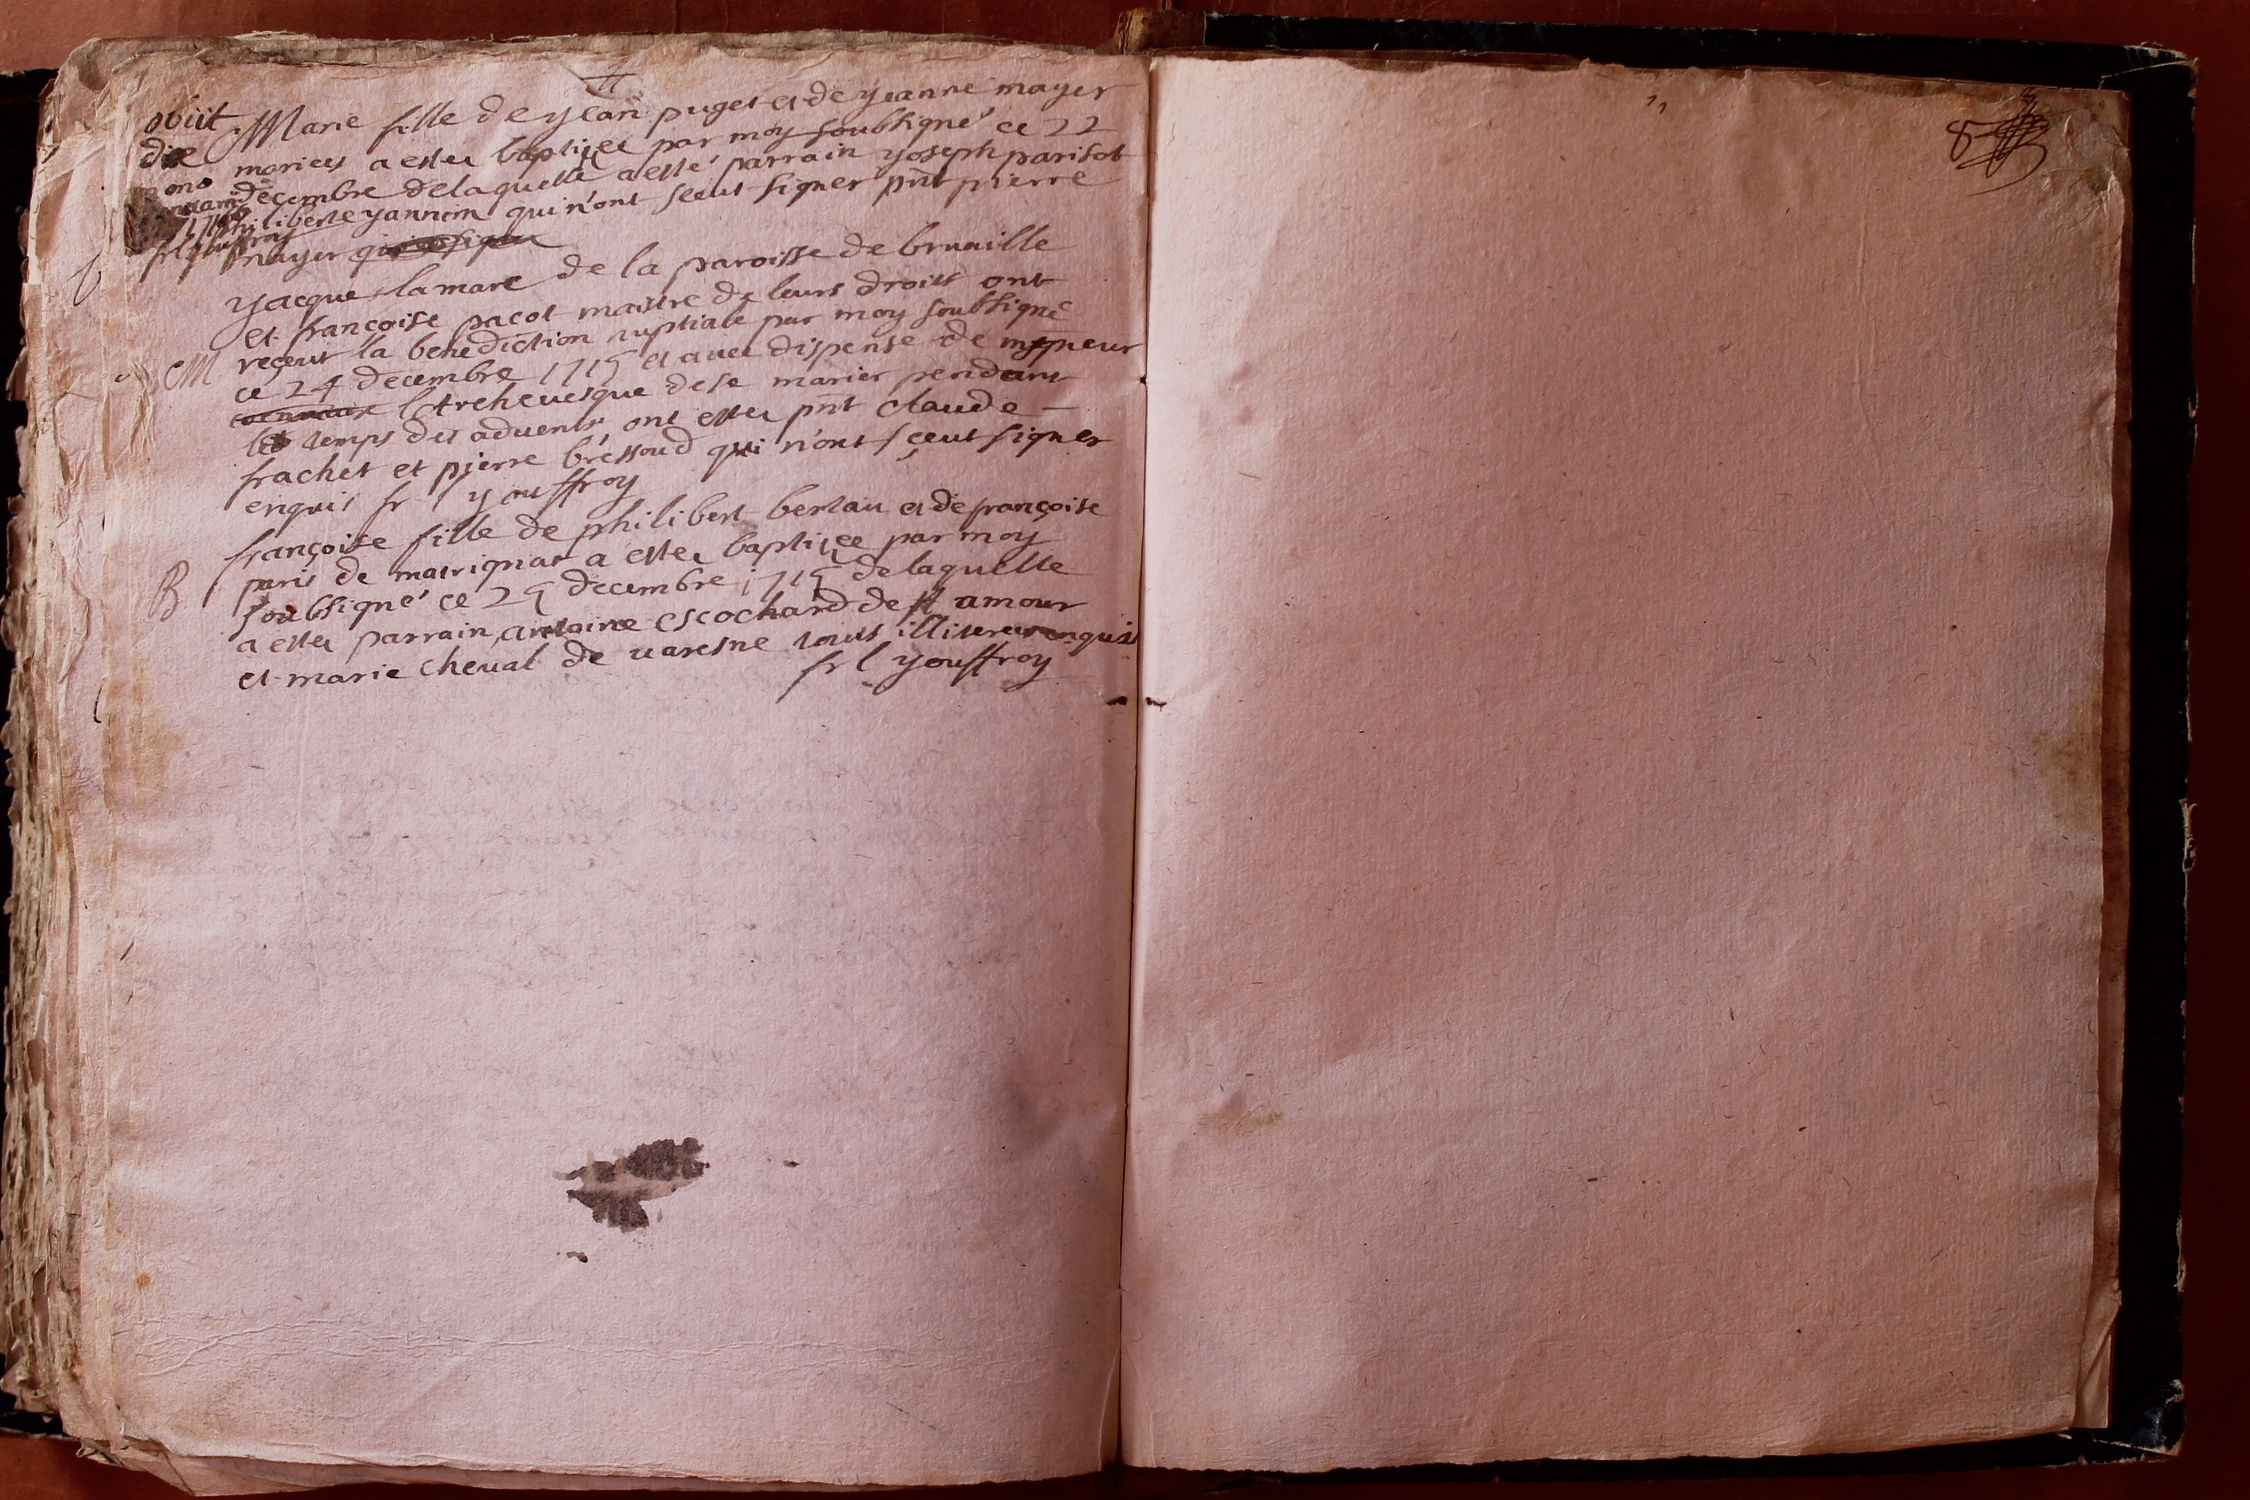 obiit
die
Marie fille de yean puget et de yeanne mayer
mariees a estee baptizee par moy soubsigné ce 22
decembre delaquelle a esté parrain yoseph parisot
philiberte yannin qui n'ont sceut signer pñt pierre
mayer
yacque lamare de la paroisse de bruaille
et françoise pacot maistre de leurs droits ont
M
receut la benediction nuptiale par moy soubsigné
ce 24 decembre 1715 et avec dispense de mgneur
l'Archevesque de se marier pendant
les temps des advents ont estee pñt claude
frachet et pierre bressoud qui n'ont sçeut signer
enquis fr l youffroy
françoise fille de philibert berlau et de françoise
B
paris de marrignat a estee baptizee par moy
soubsigné ce 25 decembre 1715 delaquelle
a estee parrain antoine escochard de st amour
et marie cheval de varesne touts illiterez enquis
fr l youffroy
8